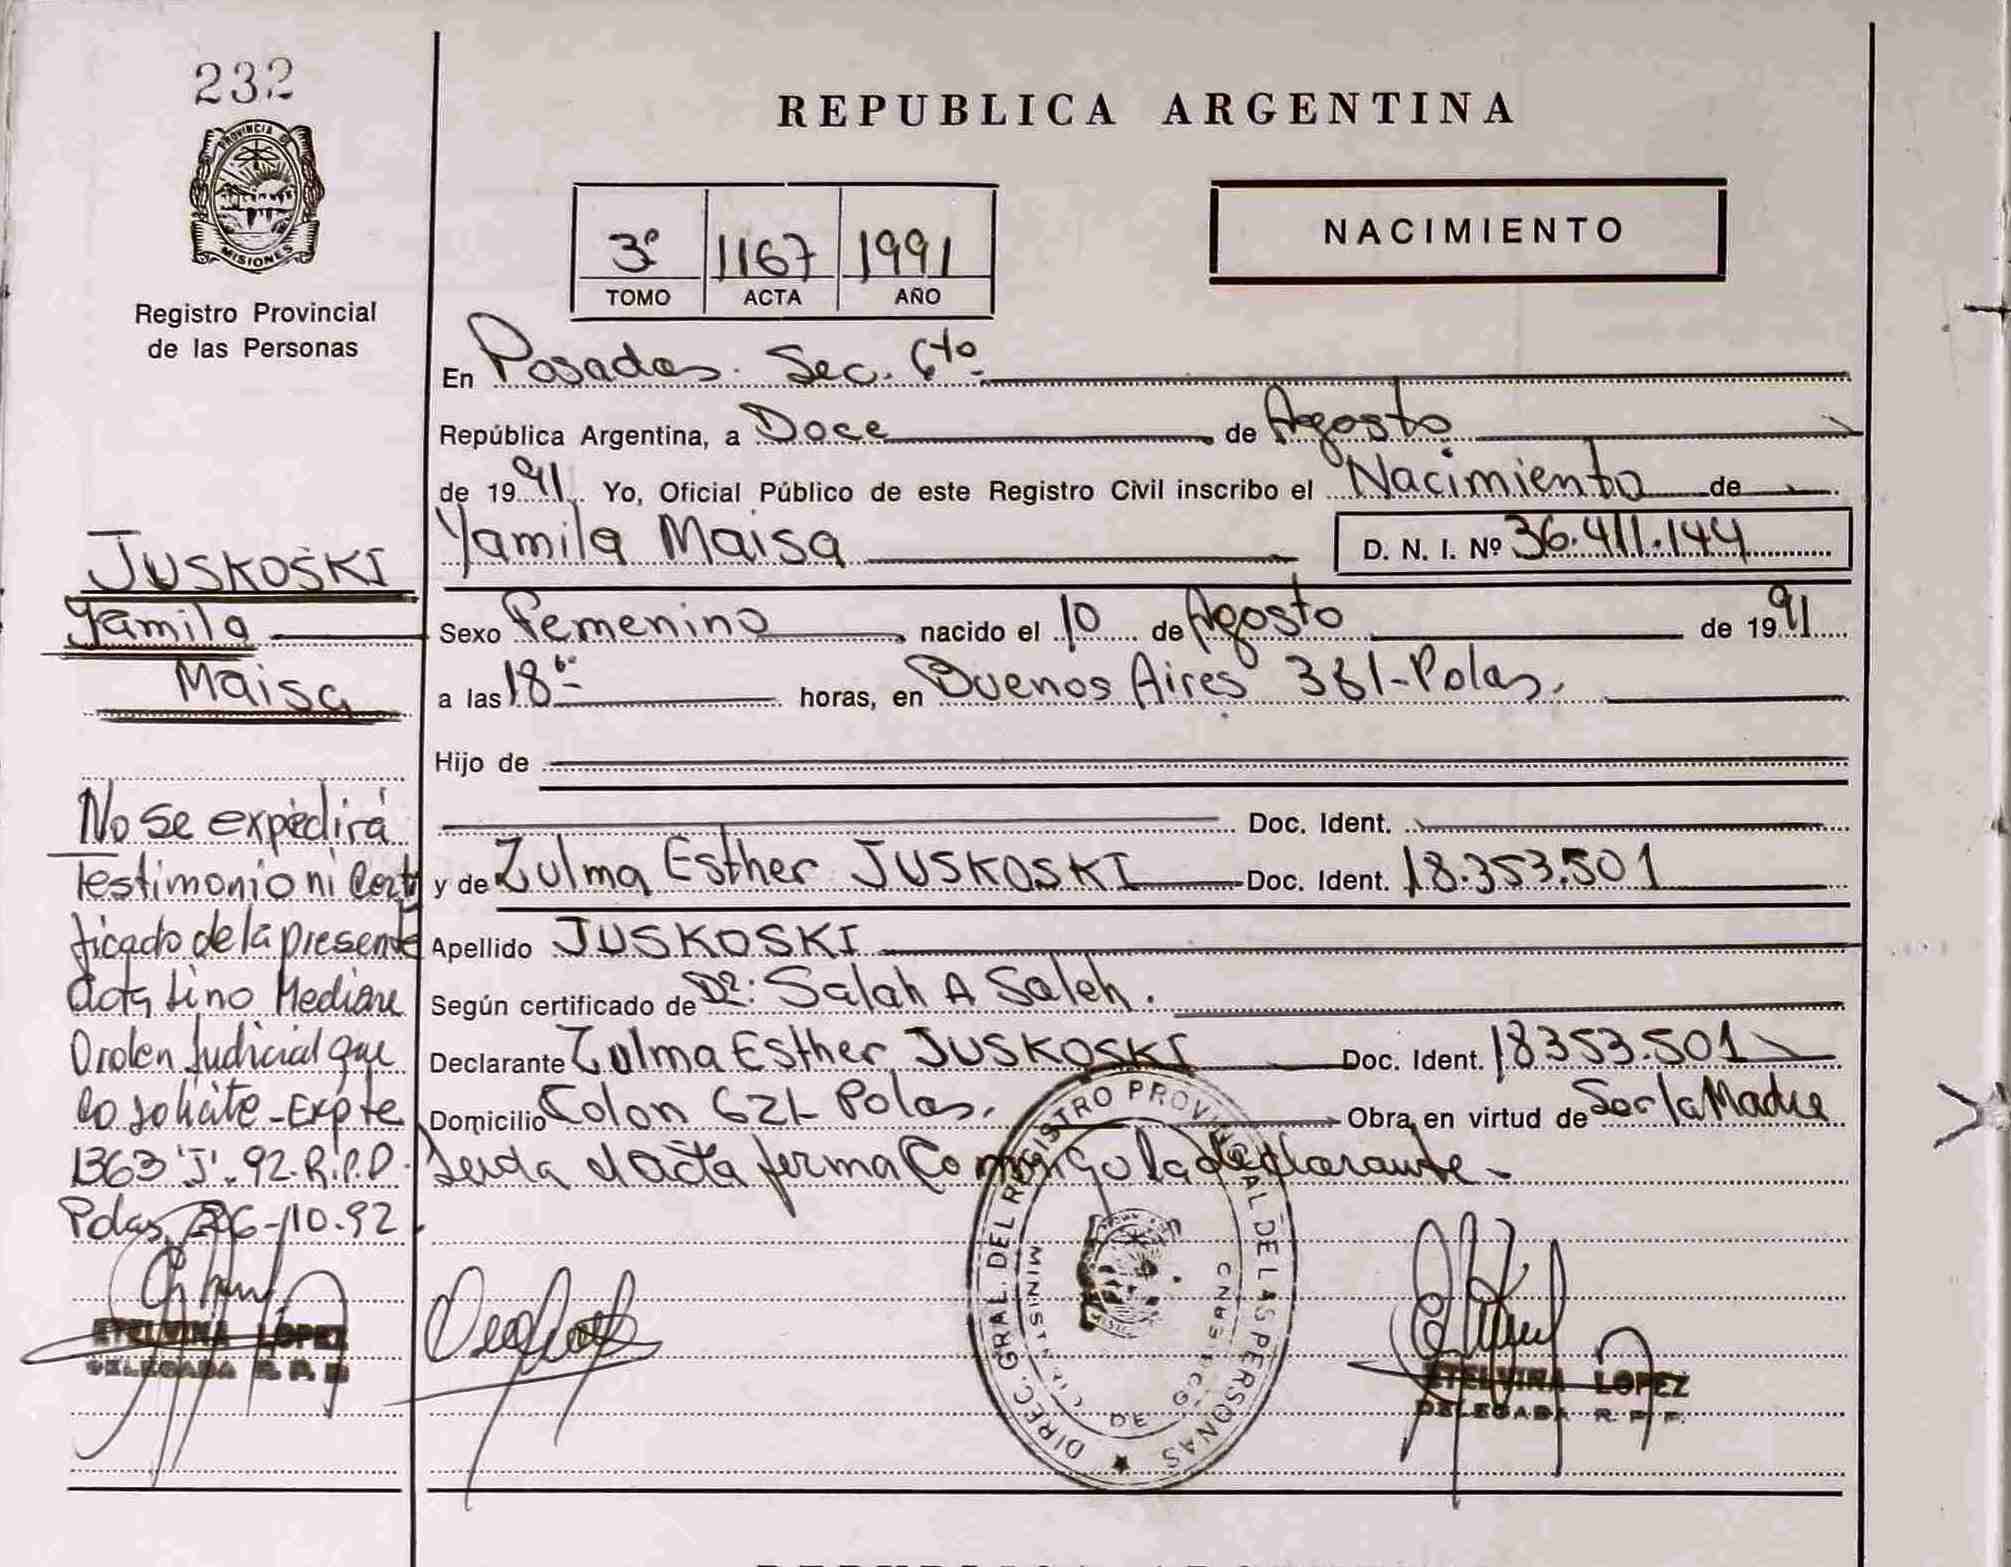 232
PROVINCIA DE
MISIONES
Registro Provincial
de las Personas
JUSKOSKI
Yamila
Maisa
No se expedirá
Testimonio ni Certi
ficado de la presente
acta sino Mediante
Orden Judicial que
lo solicite - Expte
1363 "J". 92. R.P.P.
Pdas, 26-10-92
ETELVINA LOPEZ
DELEGADA R. P. P.
REPUBLICA ARGENTINA
3º 1167 1991
TOMO ACTA AÑO
NACIMIENTO
En Posadas. Sec. 6ta.
República Argentina, a Doce de Agosto
de 1991. Yo, Oficial Público de este Registro Civil inscribo el Nacimiento de
Yamila Maisa D. N. I. Nº 36.411.144
Sexo Femenino nacido el 10 de Agosto de 1991
a las 18 hs horas, en Buenos Aires 381-Pdas.
Hijo de
Doc. Ident.
y de Zulma Esther JUSKOSKI Doc. Ident. 18.353.501
Apellido JUSKOSKI
Según certificado de Dr: Salah A Saleh.
Declarante Zulma Esther JUSKOSKI Doc. Ident. 18353.501
Domicilio Colon 621- Pdas. Obra en virtud de Ser la Madre
Leida el acta firma Conmigo la declarante.
DIREC. GRAL. DEL REGISTRO PROVINCIAL DE LAS PERSONAS
ETELVINA LOPEZ
DELEGADA R. P. P.